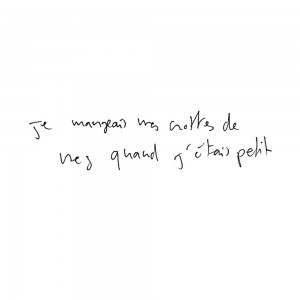 je mangeais mes crottes de
nez quand j'étais petit